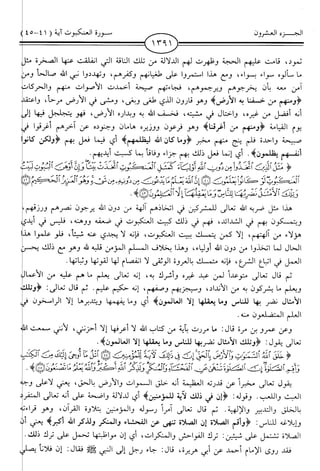 الجـزء العشرون
١٣٩١
سورة العنكبوت آية (٤١-٤٥)
ثمود، قامت عليهم الحجة وظهرت لهم الدلالة من تلك الناقة التي انفلقت عنها الصخرة مثل
ما سألوه سواء بسواء، ومع هذا استمروا على طغيانهم وكفرهم، وتهددوا نبي الله صالحاً ومن
آمن معه بأن يخرجوهم ويرجموهم، فجاءتهم صيحة أخمدت الأصوات منهم والحركات
﴿ومنهم من خسفنا به الأرض﴾ وهو قارون الذي طغى وبغى، ومشى في الأرض مرحاً، واعتقد
أنه أفضل من غيره، واختال في مشيته، فخسف الله به وبداره الأرض، فهو يتجلجل فيها إلى
يوم القيامة ﴿ومنهم من أغرقنا﴾ وهو فرعون ووزيره هامان وجنوده عن آخرهم أغرقوا في
صبيحة واحدة فلم ينج منهم مخبر ﴿وما كان الله ليظلمهم﴾ أي فيما فعل بهم ﴿ولكن كانوا
أنفسهم يظلمون﴾. أي إنما فعل ذلك بهم جزاء وفاقاً بما كسبت أيديهم.
﴿ مَثَلُ الَّذِينَ اتَّخَذُوا مِن دُونِ اللَّهِ أَوْلِيَاءَ كَمَثَلِ الْعَنكَبُوتِ اتَّخَذَتْ بَيْتًا وَإِنَّ أَوْهَنَ الْبُيُوتِ لَبَيْتُ
الْعَنكَبُوتِ لَوْ كَانُوا يَعْلَمُونَ ۝ إِنَّ اللَّهَ يَعْلَمُ مَا يَدْعُونَ مِن دُونِهِ مِن شَيْءٍ وَهُوَ الْعَزِيزُ الْحَكِيمُ ۝
وَتِلْكَ الْأَمْثَالُ نَضْرِبُهَا لِلنَّاسِ وَمَا يَعْقِلُهَا إِلَّا الْعَالِمُونَ ۝ ﴾
هذا مثل ضربه الله تعالى للمشركين في اتخاذهم آلهة من دون الله يرجون نصرهم ورزقهم،
ويتمسكون بهم في الشدائد، فهم في ذلك كبيت العنكبوت في ضعفه ووهنه، فليس في أيدي
هؤلاء من آلهتهم، إلا كمن يتمسك ببيت العنكبوت، فإنه لا يجدي عنه شيئاً، فلو علموا هذا
الحال لما اتخذوا من دون الله أولياء، وهذا بخلاف المسلم المؤمن قلبه لله وهو مع ذلك يحسن
العمل في اتباع الشرع، فإنه متمسك بالعروة الوثقى لا انفصام لها لقوتها وثباتها.
ثم قال تعالى متوعداً لمن عبد غيره وأشرك به، إنه تعالى يعلم ما هم عليه من الأعمال
ويعلم ما يشركون به من الأنداد، وسيجزيهم وصفهم، إنه حكيم عليم. ثم قال تعالى: ﴿وتلك
الأمثال نضر بها للناس وما يعقلها إلا العالمون﴾ أي وما يفهمها ويتدبرها إلا الراسخون في
العلم المتضلعون منه.
وعن عمرو بن مرة قال: ما مررت بآية من كتاب الله لا أعرفها إلا أحزنني، لأنني سمعت الله
تعالى يقول: ﴿وتلك الأمثال نضربها للناس وما يعقلها إلا العالمون﴾.
﴿ خَلَقَ اللَّهُ السَّمَاوَاتِ وَالْأَرْضَ بِالْحَقِّ إِنَّ فِي ذَٰلِكَ لَآيَةً لِّلْمُؤْمِنِينَ ۝ اتْلُ مَا أُوحِيَ إِلَيْكَ مِنَ الْكِتَابِ
وَأَقِمِ الصَّلَاةَ إِنَّ الصَّلَاةَ تَنْهَىٰ عَنِ الْفَحْشَاءِ وَالْمُنكَرِ وَلَذِكْرُ اللَّهِ أَكْبَرُ وَاللَّهُ يَعْلَمُ مَا تَصْنَعُونَ ۝ ﴾.
يقول تعالى مخبراً عن قدرته العظيمة أنه خلق السموات والأرض بالحق، يعني لا على وجه
العبث واللعب. وقوله: ﴿إن في ذلك لآية للمؤمنين﴾ أي لدلالة واضحة على أنه تعالى المتفرد
بالخلق والتدبير والإلهية. ثم قال تعالى آمراً رسوله والمؤمنين بتلاوة القرآن، وهو قراءته
وإبلاغه للناس: ﴿وأقم الصلاة إن الصلاة تنهى عن الفحشاء والمنكر ولذكر الله أكبر﴾ يعني أن
الصلاة تشتمل على شيئين: ترك الفواحش والمنكرات، أي إن مواظبتها تحمل على ترك ذلك.
فقد روى الإمام أحمد عن أبي هريرة، قال: جاء رجل إلى النبي ﷺ فقال: إن فلاناً يصلي